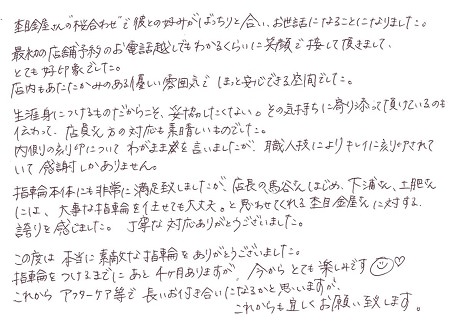 杢目金屋さんの"桜合わせ"で彼との好みがばっちりと合い、お世話になることになりました。
最初の店舗予約のお電話越しでもわかるくらいに笑顔で接して頂きまして、
とても好印象でした。
店内もあたたかみのある優しい雰囲気で ほっと安心できる空間でした。
生涯身につけるものだからこそ、妥協したくない。その気持ちに寄り添って頂けているのも
伝わって、店員さん方の対応も素晴しいものでした。
内側の刻印について わがままを言いましたが、職人技によりキレイに刻印されて
いて感謝しかありません。
指輪本体にも非常に満足致しましたが、店長の馬谷さんはじめ、下浦さん、土肥さん
には、大事な指輪を任せても大丈夫。と思わせてくれる杢目金屋さんに対する
誇りを感じました。丁寧な対応ありがとうございました。
この度は 本当に素敵な指輪をありがとうございました。
指輪をつけるまでに あと 4ヶ月ありますが、今から とても 楽しみです
これから アフターケア等で 長いお付き合いになるかと思いますが、
これからも宜しくお願い致します。